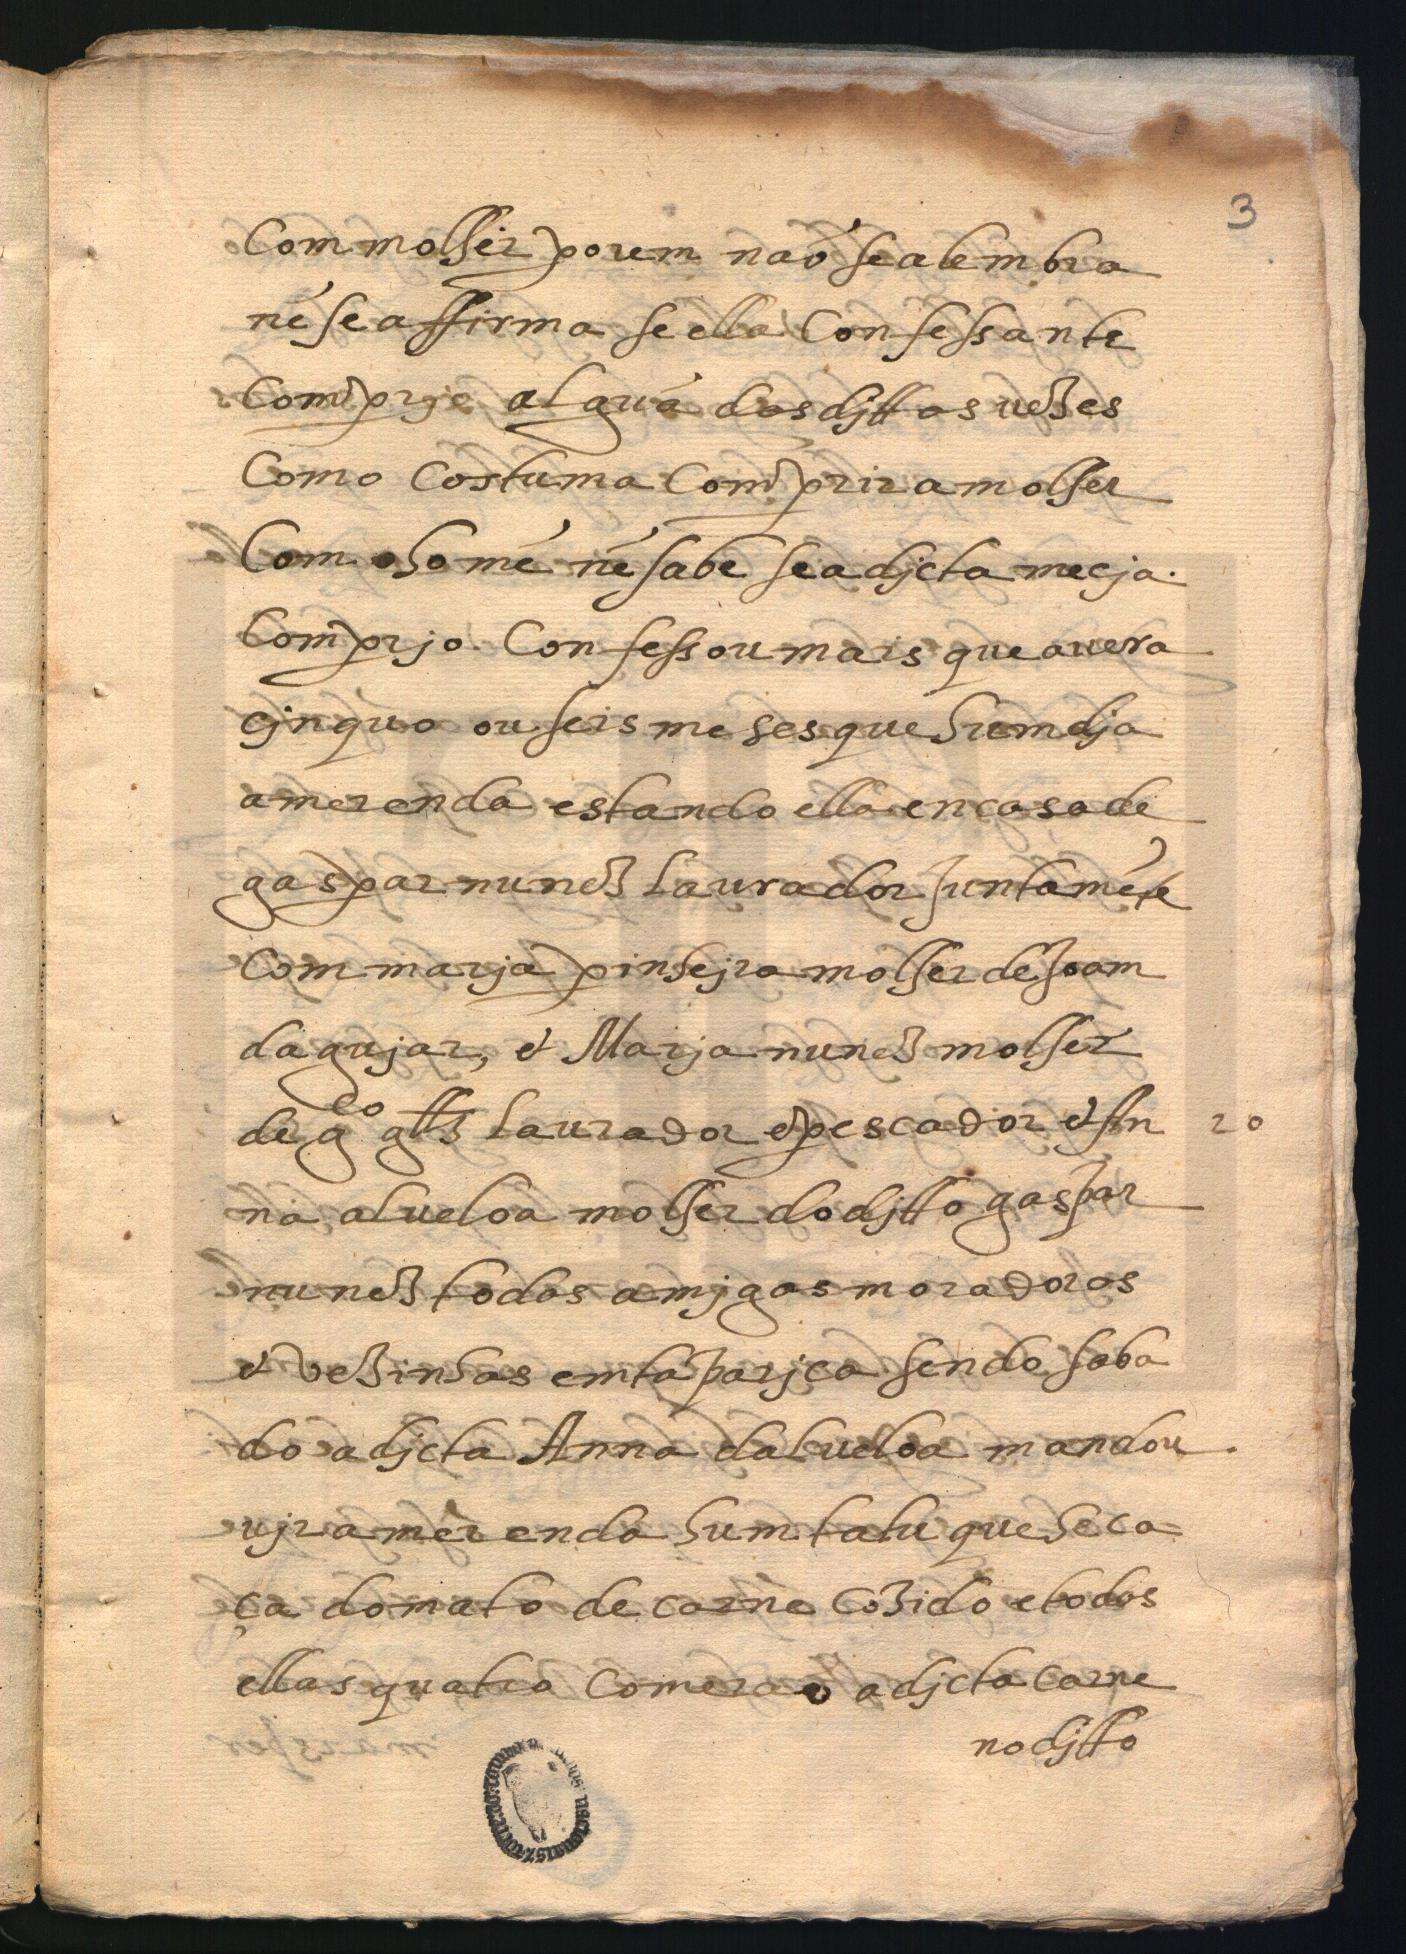 3
Com molher porem naõ se alembra
nẽ se affirma se ella Confessante
Comprjo algũa das djttas vezes
Como costuma Comprir a molher
Com o homẽ nẽ sabe se a djcta mecja.
Comprjo. Confessou mais que avera
cjnquo ou seis meses que hum dja
a merenda estando ella en casa de
gaspar nunez laurador Juntamẽte
Com marja pinhejra molher de Joam
dagujar, & Marja nunez molher
de g^co gllz laurador & pescador & An 20
na alueloa molher do djtto gaspar
nunez todas amjgas moradoras
& vezinhas em taparjca sendo saba
do a djcta Anna dalueloa mandou
vjr a merenda hum tatu que he ca
ça do mato de carne cozido e todas
ellas quatro Comeraõ a djcta carne
no djtto